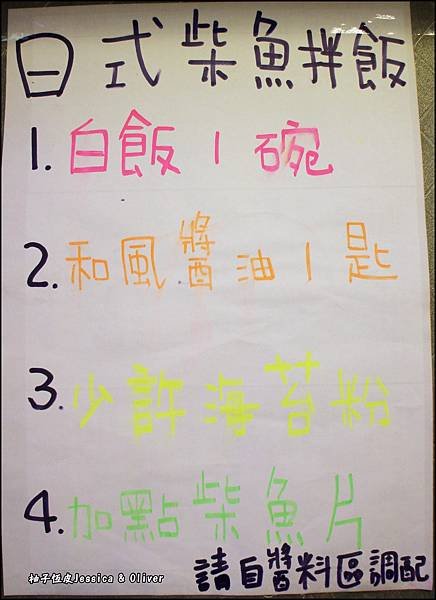 日式柴魚拌飯
1. 白飯1碗
2. 和風醬油1匙
3. 少許海苔粉
4. 加點柴魚片
請自醬料區調配
柚子恆皮Jessica & Oliver